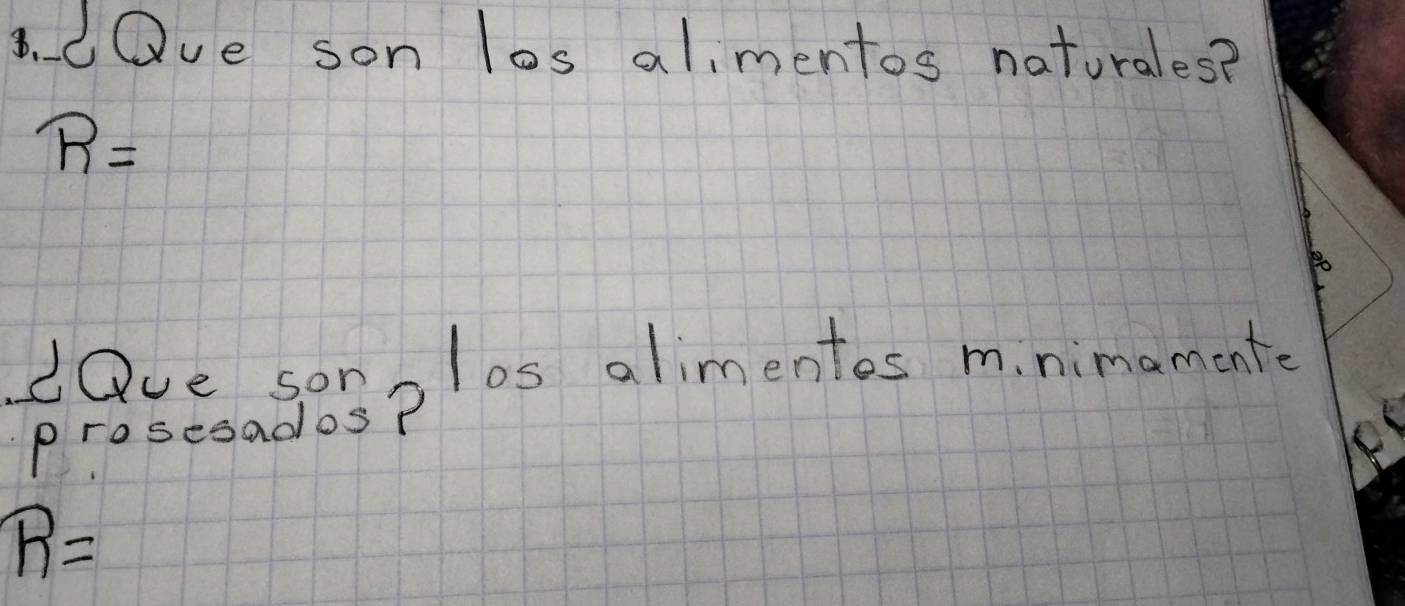 1.-¿Que son los alimentos naturales?
R=
.-¿Que son los alimentos minimamente
prosesados?
R=